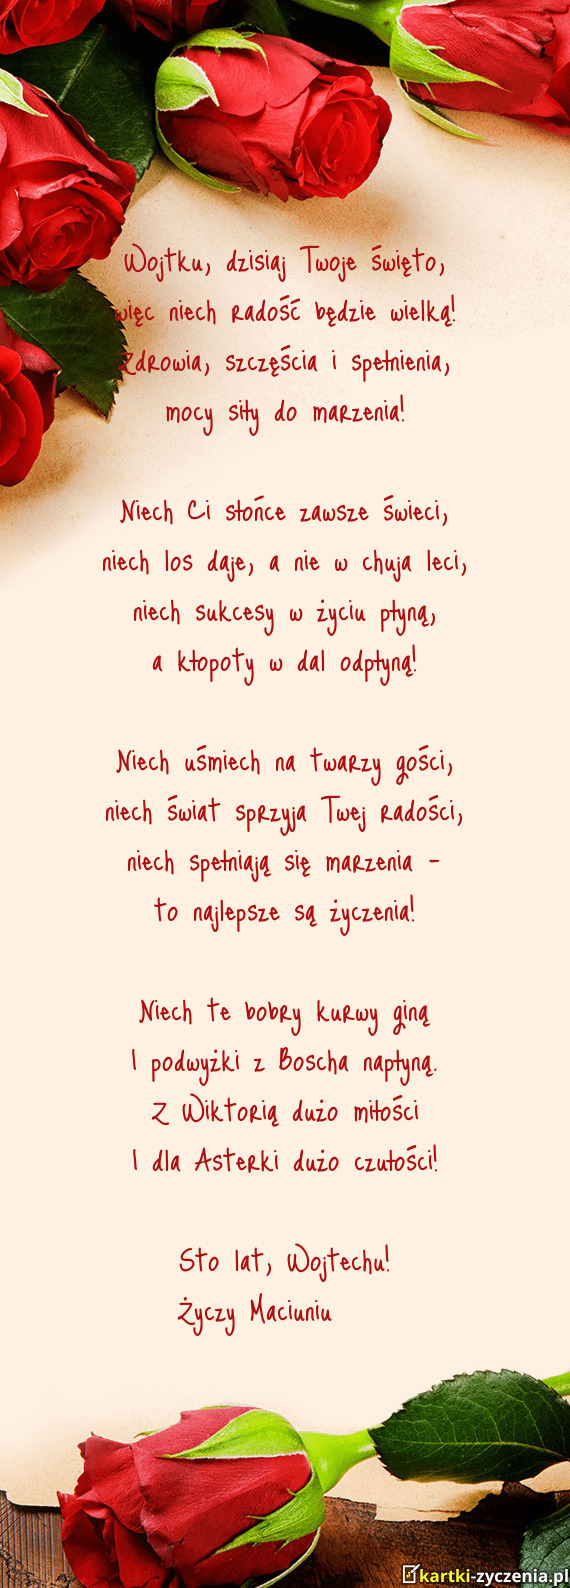 Wojtku, dzisiaj Twoje święto,
więc niech radość będzie wielką!
Zdrowia, szczęścia i spełnienia,
mocy siły do marzenia!
Niech Ci słońce zawsze świeci,
niech los daje, a nie w chuja leci,
niech sukcesy w życiu płyną,
a kłopoty w dal odpłyną!
Niech uśmiech na twarzy gości,
niech świat sprzyja Twej radości,
niech spełniają się marzenia -
to najlepsze są życzenia!
Niech te bobry kurwy giną
I podwyżki z Boscha napłyną.
Z Wiktorią dużo miłości
I dla Asterki dużo czułości!
Sto lat, Wojtechu!
Życzy Maciuniu
kartki-zyczenia.pl